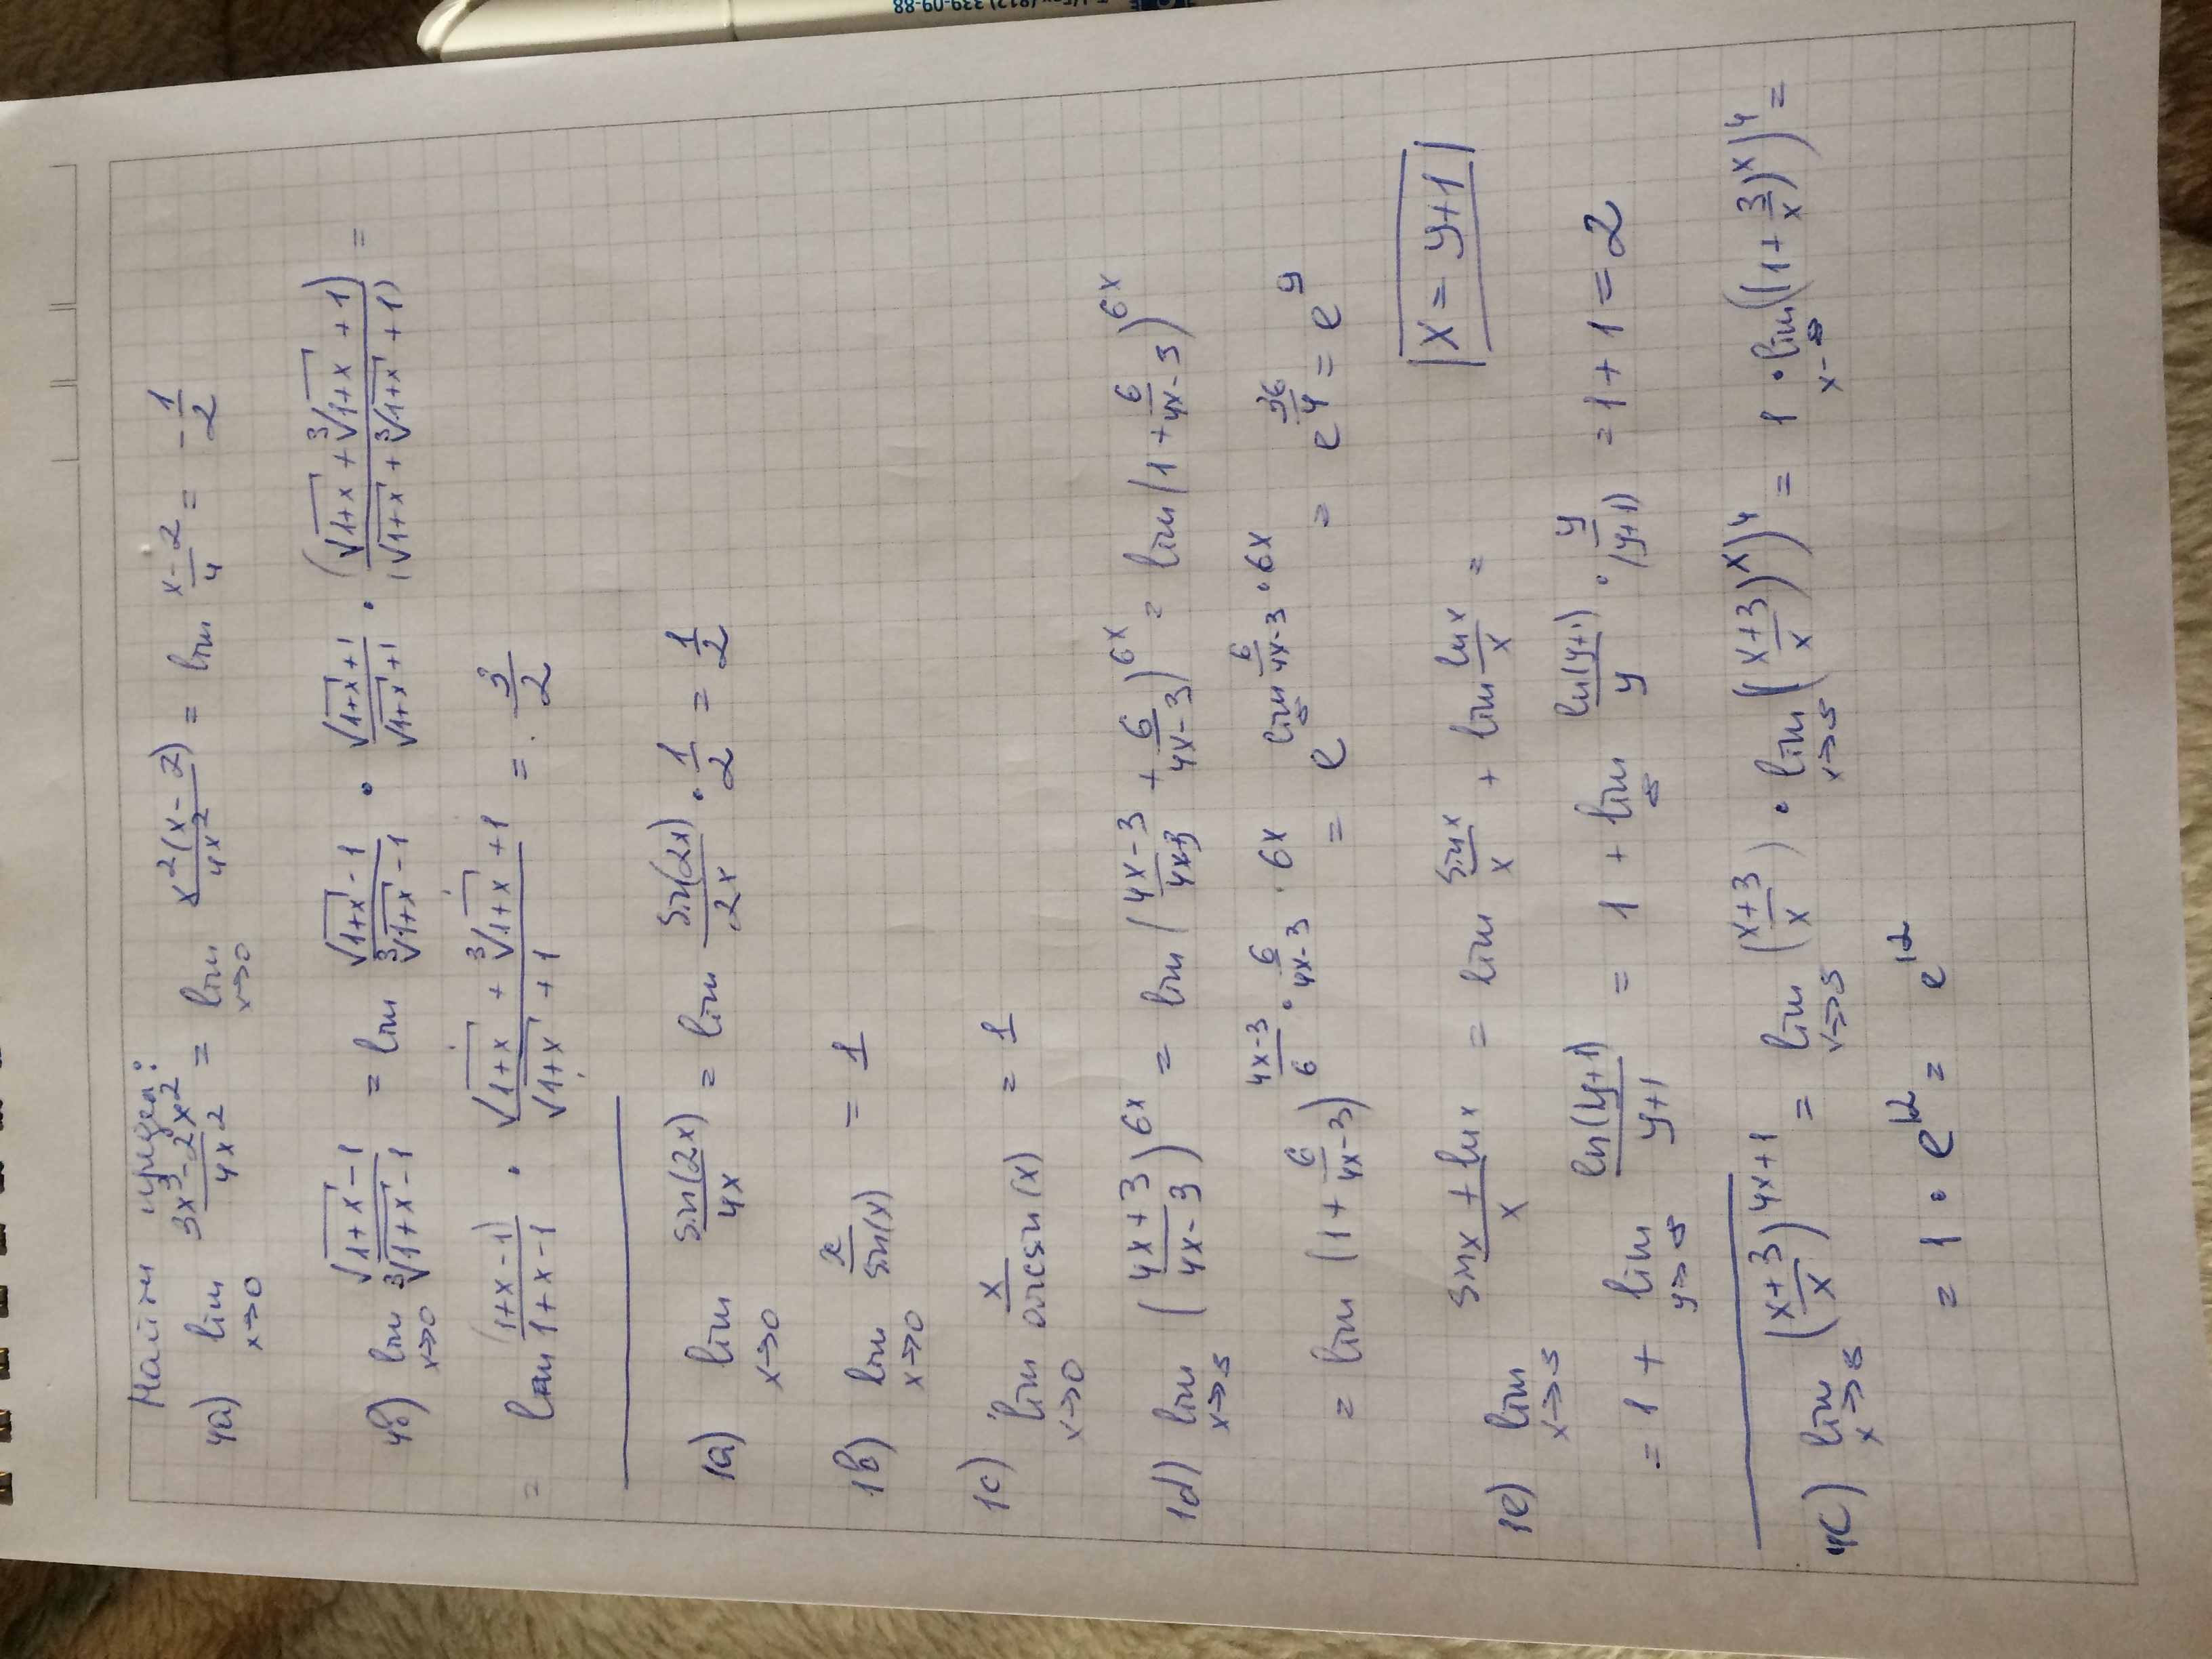 Найти предел:
4a) lim x→0 (3x³ - 2x²)/(4x²) = lim x→0 x²(x - 2)/(4x²) = lim (x-2)/4 = -1/2
4b) lim x→0 (√(1+x) - 1)/(∛(1+x) - 1) = lim (√(1+x) - 1)/(∛(1+x) - 1) • (√(1+x) + 1)/(√(1+x) + 1) • (√(1+x) + ∛(1+x) + 1)/(√(1+x) + ∛(1+x) + 1) =
= lim (1+x-1)/(1+x-1) • (√(1+x) + ∛(1+x) + 1)/(√(1+x) + 1) = 3/2
1a) lim x→0 sin(2x)/(4x) = lim sin(2x)/(2x) • 1/2 = 1/2
1b) lim x→0 x/sin(x) = 1
1c) lim x→0 x/arcsin(x) = 1
1d) lim x→∞ ((4x+3)/(4x-3))^(6x) = lim ((4x-3)/(4x-3) + 6/(4x-3))^(6x) = lim (1 + 6/(4x-3))^(6x)
= lim (1 + 6/(4x-3))^((4x-3)/6 • 6/(4x-3) · 6x) = e^(lim ∞ 6/(4x-3) • 6x) = e^(36/4) = e^9
1e) lim x→∞ (sinx + lnx)/x = lim sinx/x + lim lnx/x = |x = y+1|
= 1 + lim y→∞ ln(y+1)/(y+1) = 1 + lim ∞ ln(y+1)/y • y/(y+1) = 1 + 1 = 2
4c) lim x→∞ ((x+3)/x)^(4x+1) = lim x→∞ ((x+3)/x) • lim x→∞ (((x+3)/x)^x)^4 = 1 • lim x-∞ ((1 + 3/x)^x)^4 =
= 1 • e^12 = e^12
(812) 339-09-88